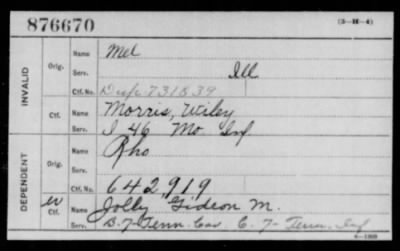 876670
(3—H—4)
INVALID
Orig.
Name Mel
Serv. Ill
Ctf. No. Dup. 731839
Ctf.
Name Morris, Wiley
Serv. I 46 Mo Inf
DEPENDENT
Orig.
Name Rho
Serv.
Ctf. No. 642,919
Ctf.
Name Jolly Gideon M.
Serv. B. 7 Tenn Cav. C. 7 Tenn. Inf